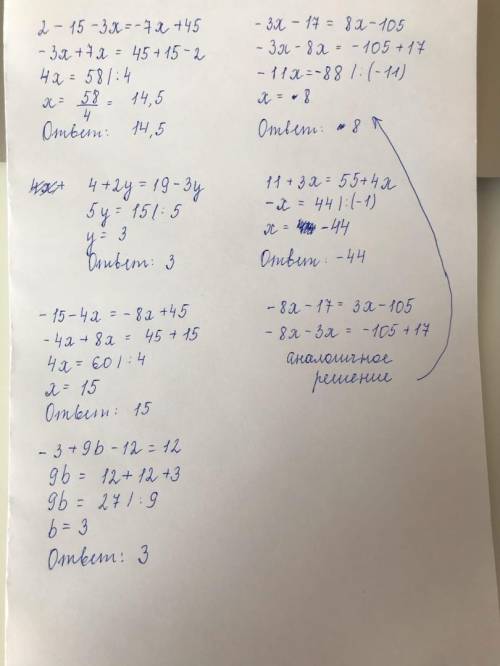 2 - 15 - 3x = -7x + 45
-3x + 7x = 45 + 15 - 2
4x = 58 /: 4
x = 58/4 = 14,5
Ответ: 14,5
4 + 2y = 19 - 3y
5y = 15 /: 5
y = 3
Ответ: 3
-15 - 4x = -8x + 45
-4x + 8x = 45 + 15
4x = 60 /: 4
x = 15
Ответ: 15
-3 + 9b - 12 = 12
9b = 12 + 12 + 3
9b = 27 /: 9
b = 3
Ответ: 3
-3x - 17 = 8x - 105
-3x - 8x = -105 + 17
-11x = -88 /: (-11)
x = 8
Ответ: 8
11 + 3x = 55 + 4x
-x = 44 /: (-1)
x = -44
Ответ: -44
-8x - 17 = 3x - 105
-8x - 3x = -105 + 17
аналогичное
решение